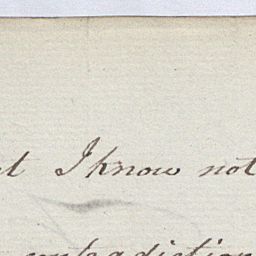 I know not
contradiction